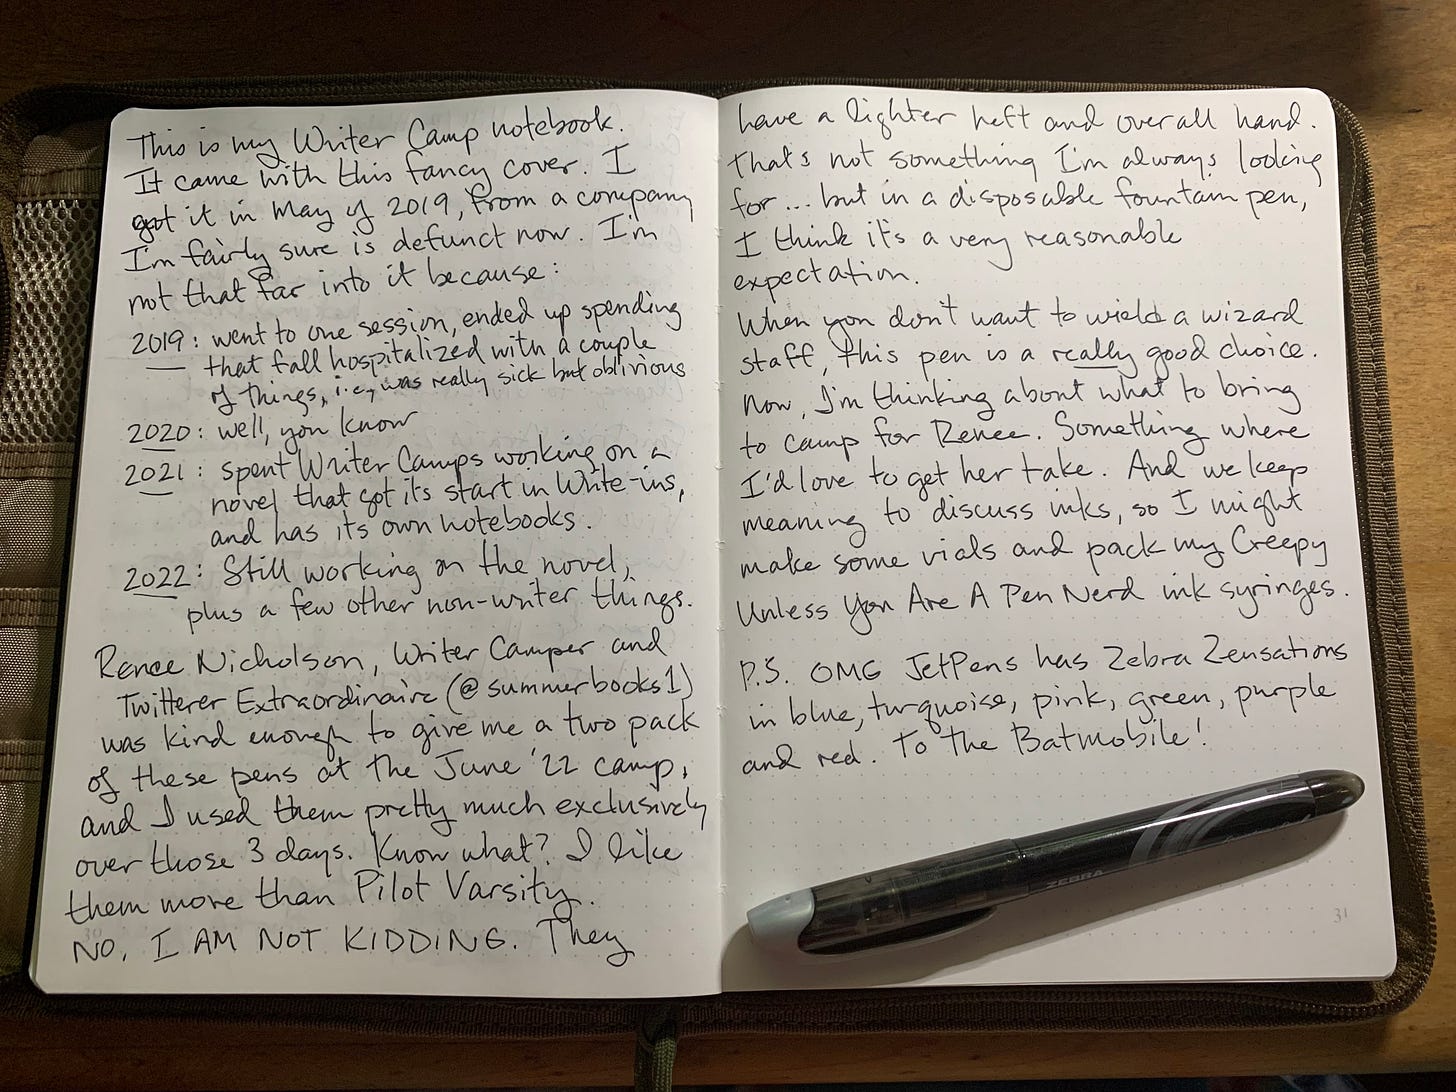 This is my Writer Camp notebook.
It came with this fancy cover. I
got it in May of 2019, from a company
I'm fairly sure is defunct now. I'm
not that far into it because:
2019: went to one session, ended up spending
that fall hospitalized with a couple
of things, i.e., was really sick but oblivious
2020: well, you know
2021: spent Writer Camps working on a
novel that got its start in Write-ins,
and has its own notebooks.
2022: Still working on the novel,
plus a few other non-writer things.
Renee Nicholson, Writer Camper and
Twitterer Extraordinaire (@summerbooks1)
was kind enough to give me a two pack
of these pens at the June '22 camp,
and I used them pretty much exclusively
over those 3 days. Know what? I like
them more than Pilot Varsity.
NO, I AM NOT KIDDING. They
30
have a lighter heft and overall hand.
That's not something I'm always looking
for... but in a disposable fountain pen,
I think it's a very reasonable
expectation.
When you don't want to wield a wizard
staff, this pen is a really good choice.
Now, I'm thinking about what to bring
to camp for Renee. Something where
I'd love to get her take. And we keep
meaning to discuss inks, so I might
make some vials and pack my Creepy
Unless You Are A Pen Nerd ink syringes.
P.S. OMG JetPens has Zebra Zensations
in blue, turquoise, pink, green, purple
and red. To the Batmobile!
ZEBRA
31